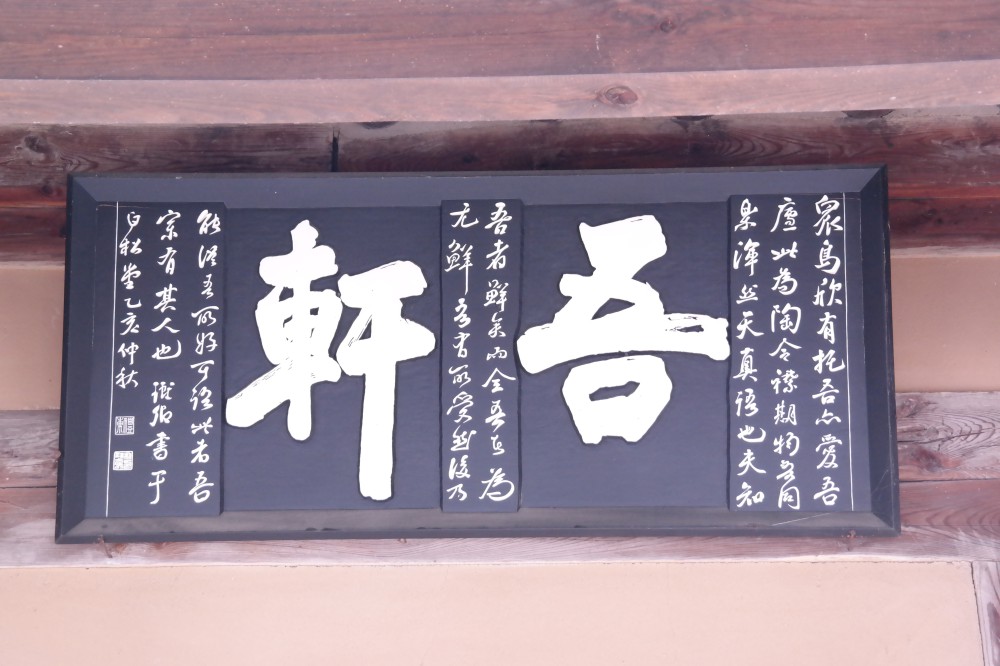 吾軒
衆鳥欣有托吾亦愛吾
廬此為陶令襟期物我同
樂渾然天真語也夫知
吾者鮮矣而全吾者為
尤鮮吾有所愛然後乃
能從吾所好可語此者吾
宗有其人也 謙卿書于
白松堂乙亥仲秋